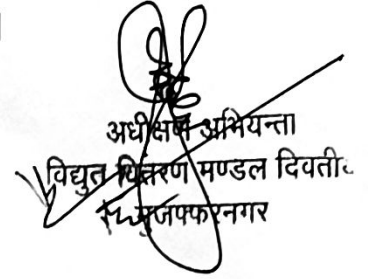 अधीक्षण अभियन्ता
विद्युत वितरण मण्डल दिवती
मुजफ्फरनगर